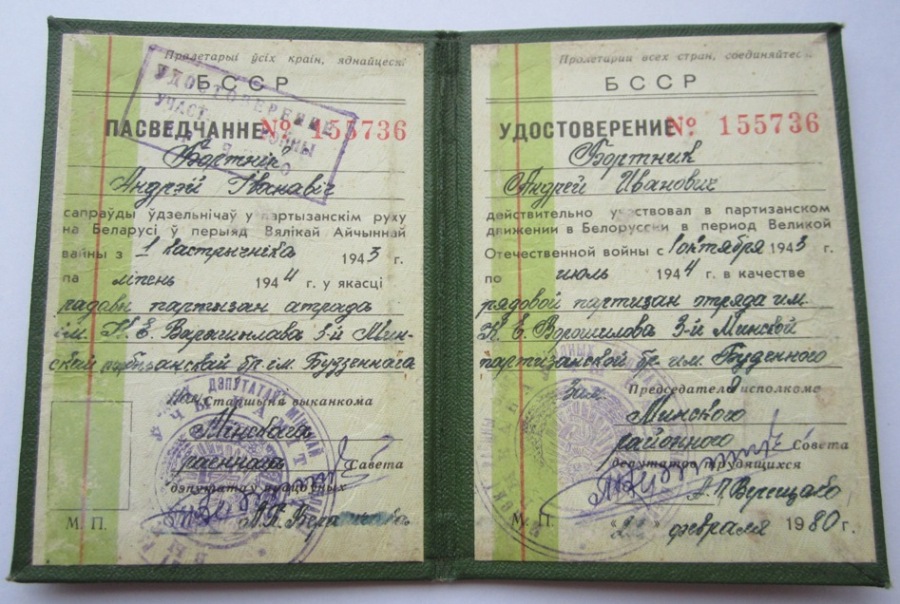 Пралетарыі ўсіх краін, яднайцеся!
БССР
УДОСТОВЕРЕНИЕ
УЧАСТ ВОЙНЫ
ПАСВЕДЧАННЕ № 155736
Бортнік
Андрэй Іванавіч
сапраўды ўдзельнічаў у партызанскім руху
на Беларусі ў перыяд Вялікай Айчыннай
вайны з 1 кастрычніка 1943 г.
па ліпень 1944 г. у якасці
радавы партызан атрада
ім. К. Е. Варашылава 3-й Мін-
скай брыг. ім. Будзённага
Старшыня выканкома
Мінскага
раённага Савета
дэпутатаў працоўных
А. П.
М. П.
Пролетарии всех стран, соединяйтесь!
БССР
УДОСТОВЕРЕНИЕ № 155736
Бортник
Андрей Иванович
действительно участвовал в партизанском
движении в Белоруссии в период Великой
Отечественной войны с 1 октября 1943 г.
по июль 1944 г. в качестве
рядовой партизан отряда им.
К. Е. Ворошилова 3-й Минской
партизанской бр. им. Буденного
Зам. Председателя исполкома
Минского
районного Совета
депутатов трудящихся
А. П. Верещако
М. П. февраля 1980 г.